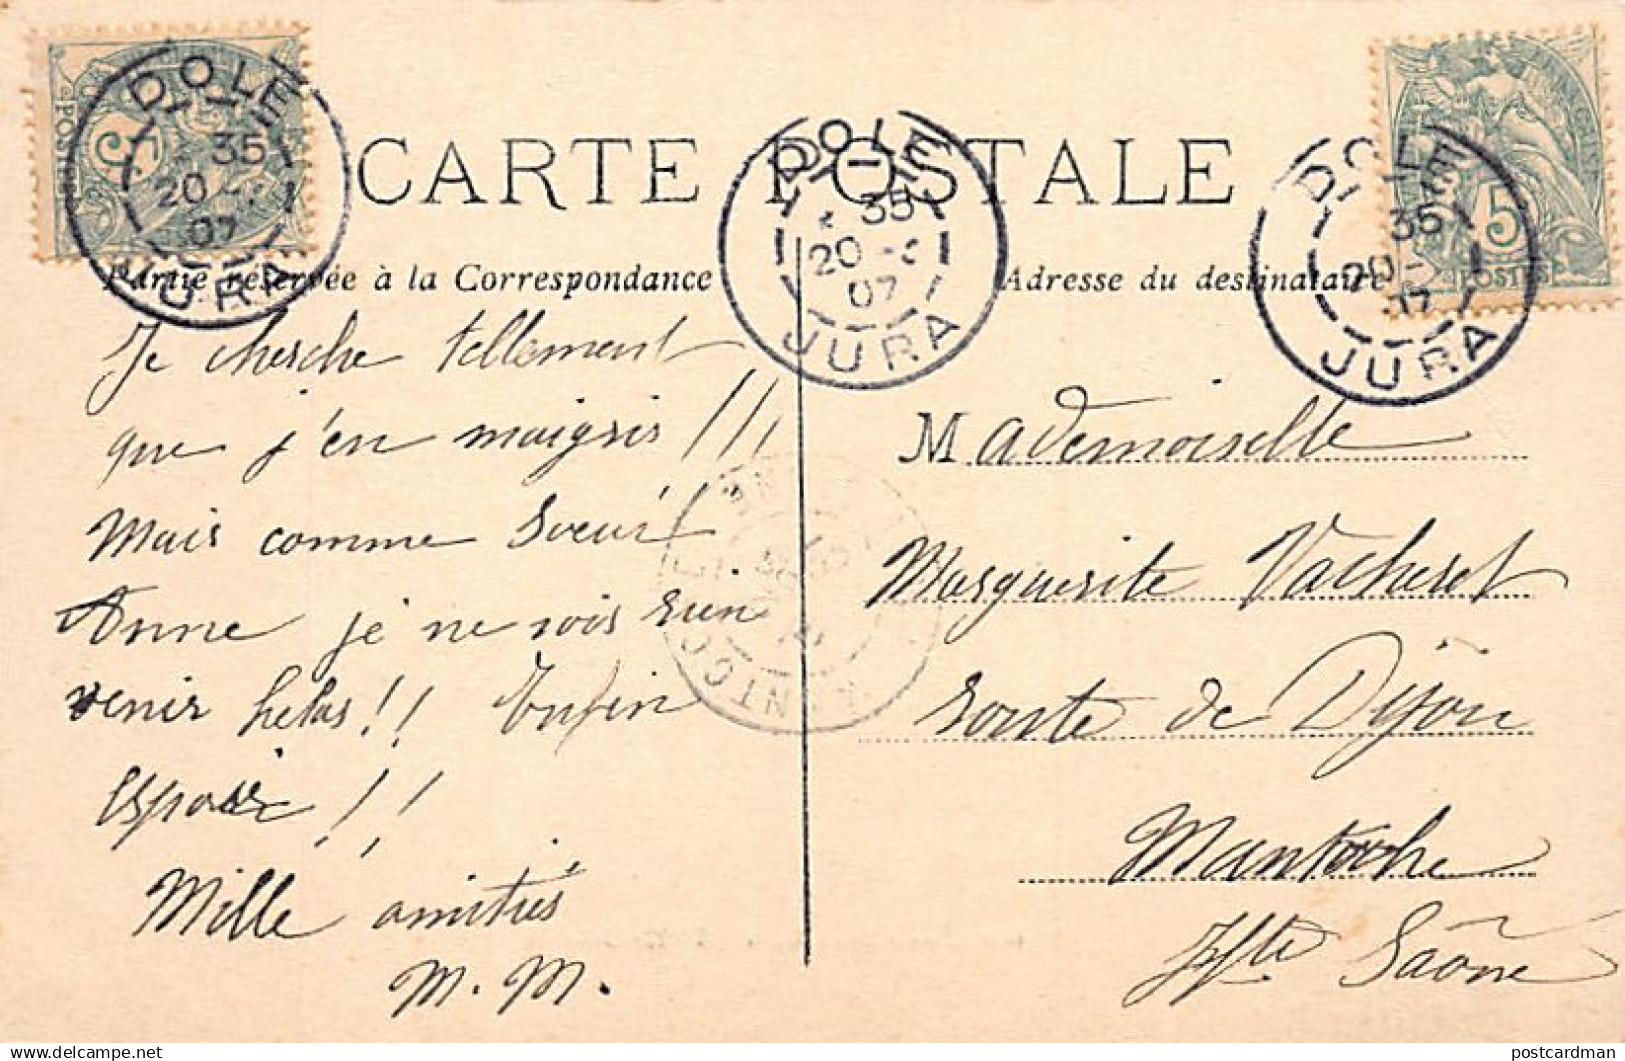 DOLE
35
20 -
07
JURA
5
POSTES
CARTE POSTALE
DOLE
35
20 -
07
JURA
DOLE
35
20 -
07
JURA
5
POSTES
Partie réservée à la Correspondance
Adresse du destinataire
Je cherche tellement
que j'en maigris !!!
Mais comme Soeur
Anne je ne vois rien
venir helas !! Enfin
espoir !!
Mille amitiés
M. M.
Mademoiselle
Marguerite Vacheret
Route de Dijon
Mantoche
Hte Saône
postcardman